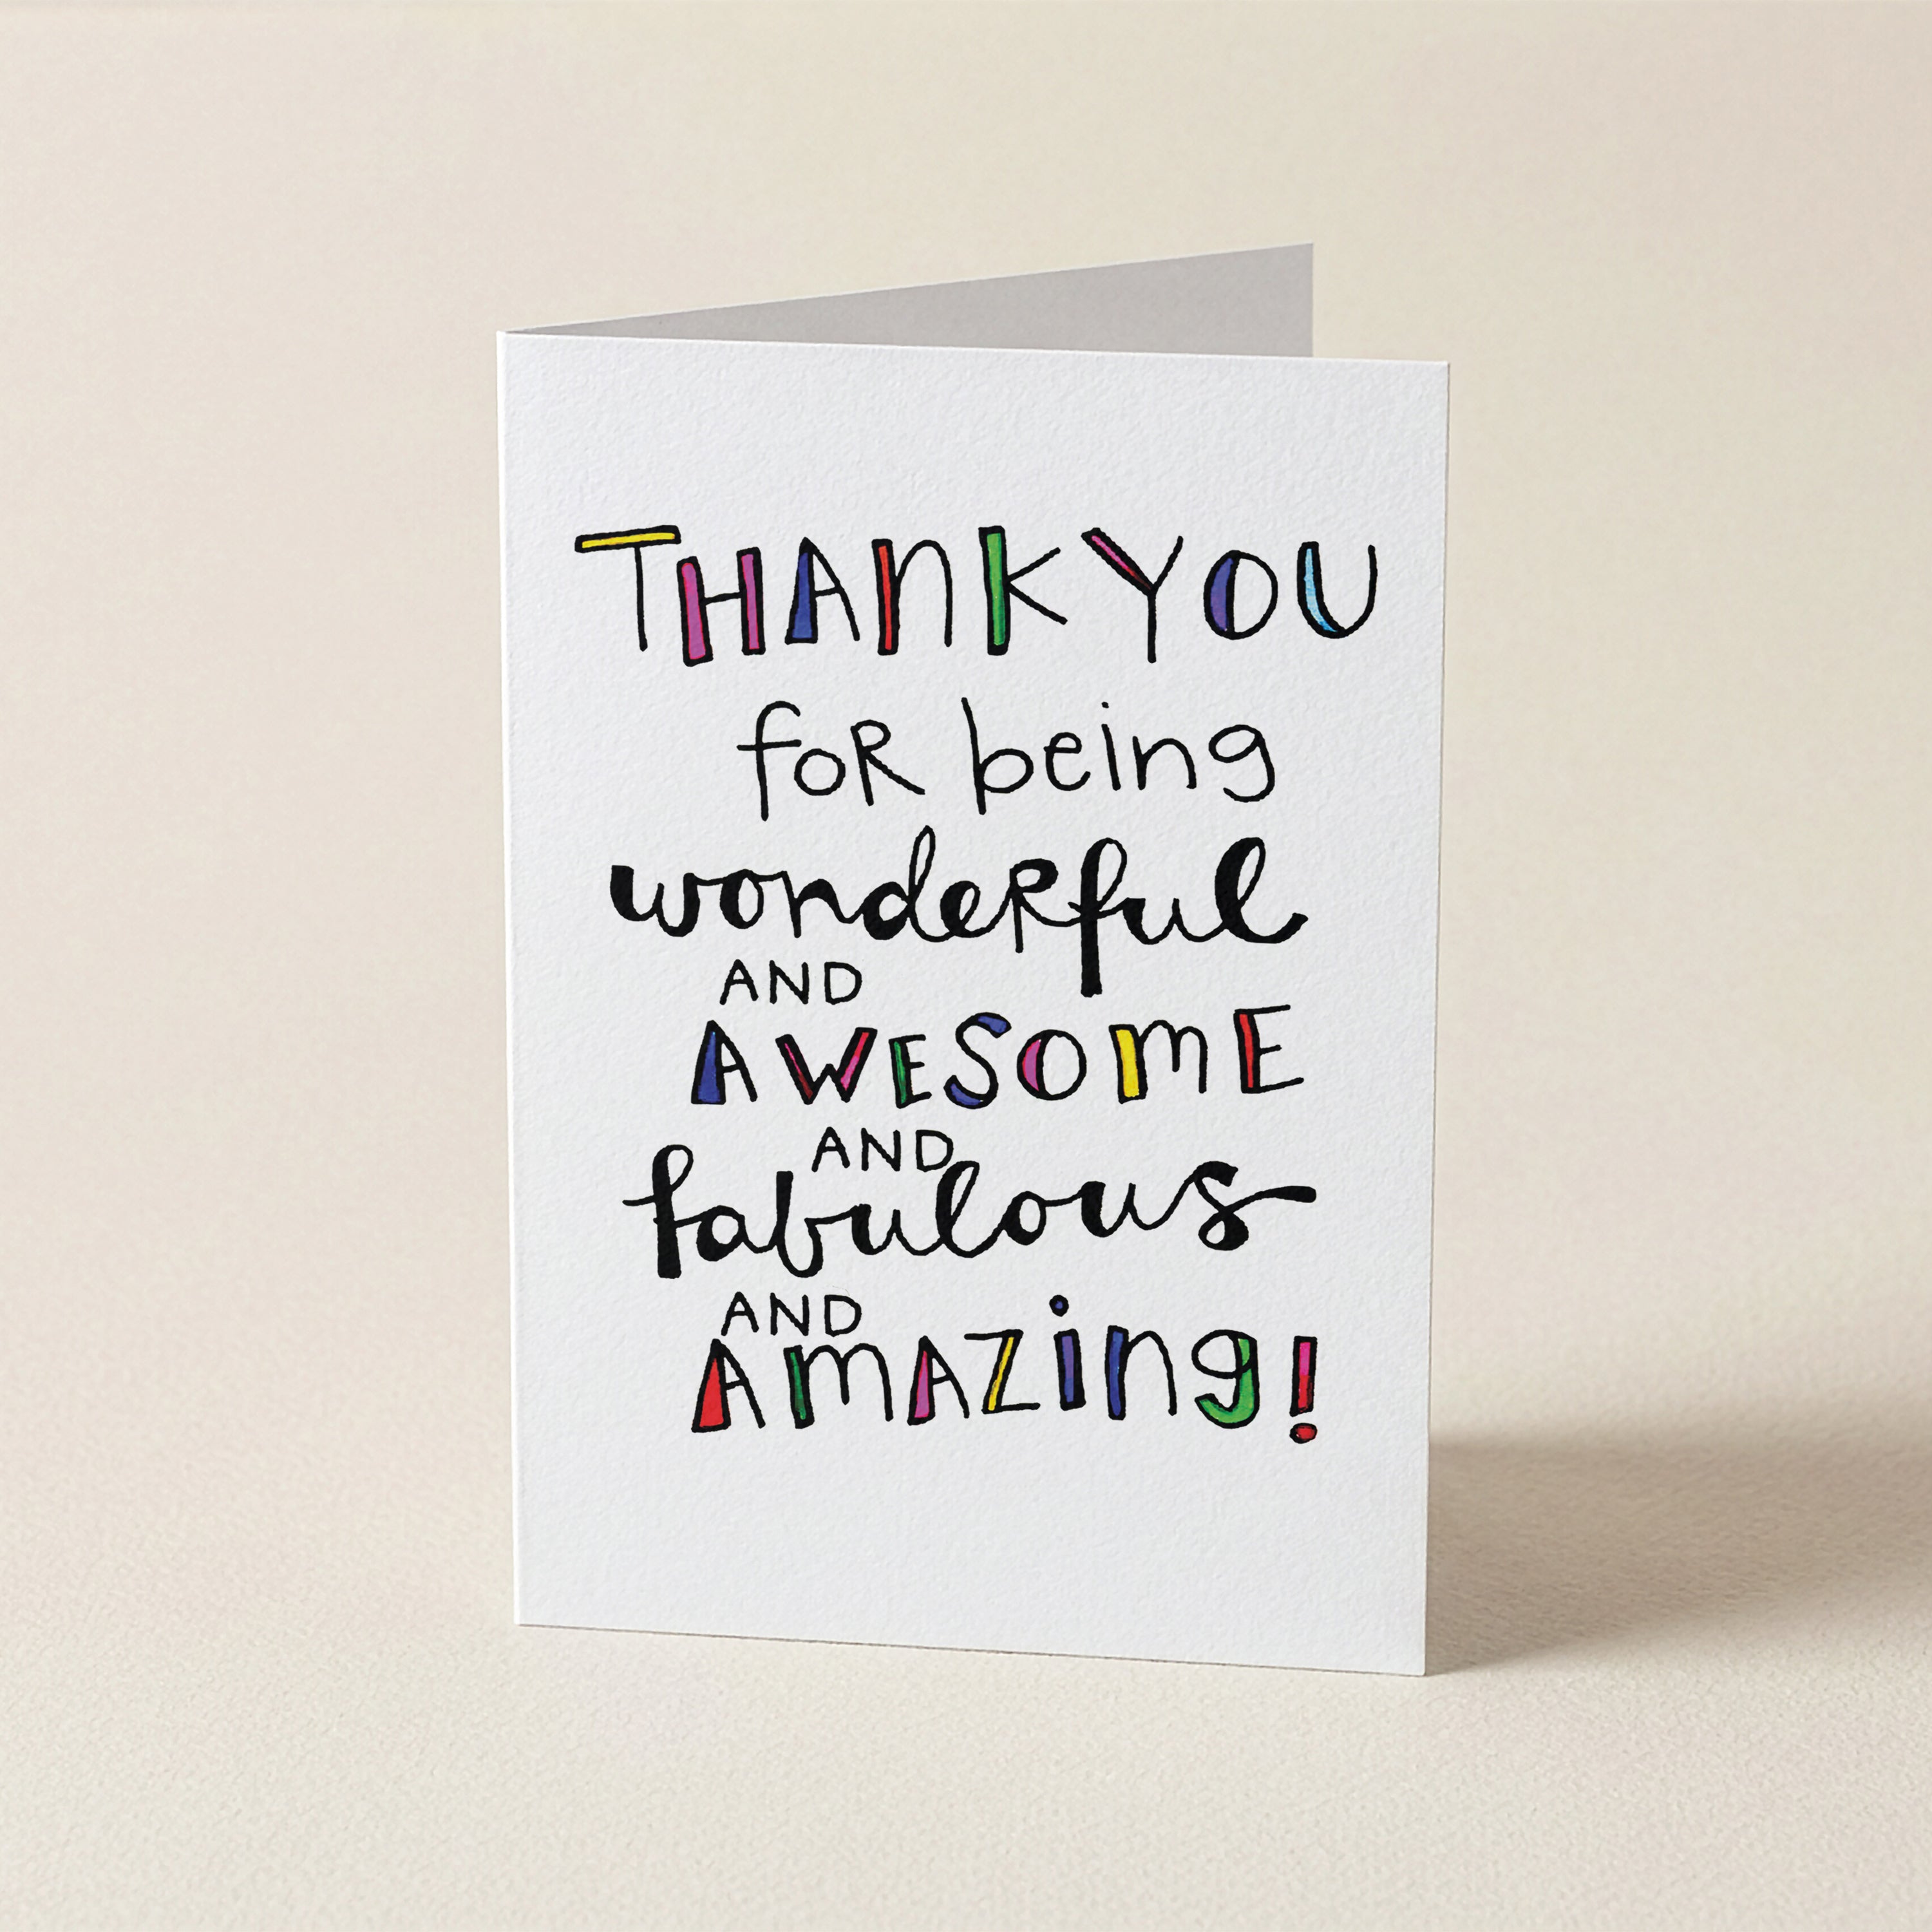 THANK YOU
foR being
wondeRful
AND
AWESOME
AND
fabulous
AND
AmAZing!